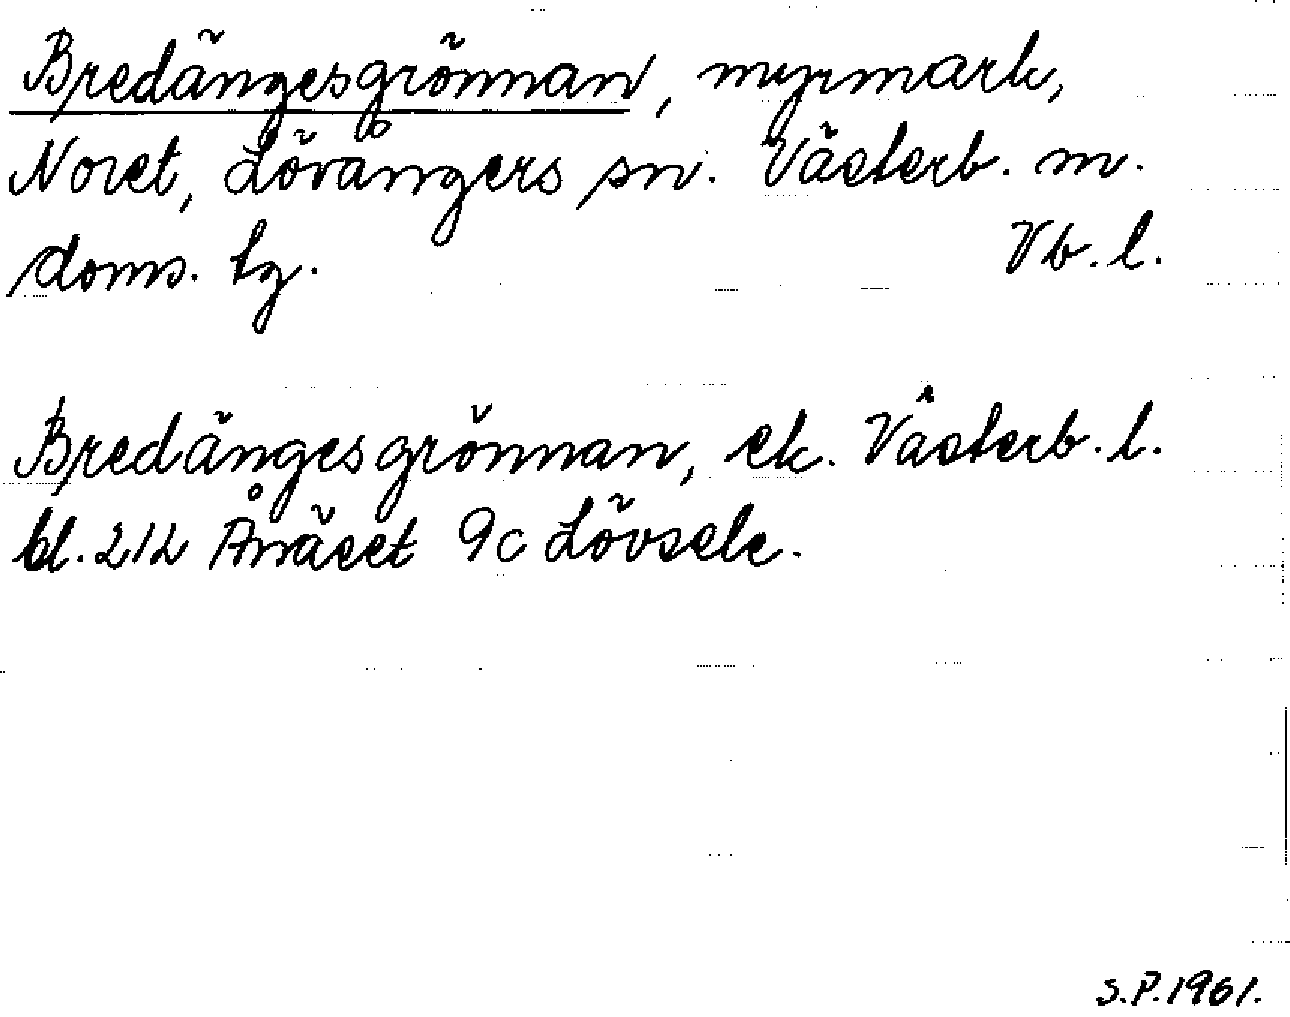 Bredängesgrönnan, myrmark,
Noret, Lövångers sn. Västerb. m.
doms. tg. Vb. l.
Bredängesgrönnan, ek. Västerb. l.
bl. 212 Ånäset 9c Lövsele.
S.P. 1961.